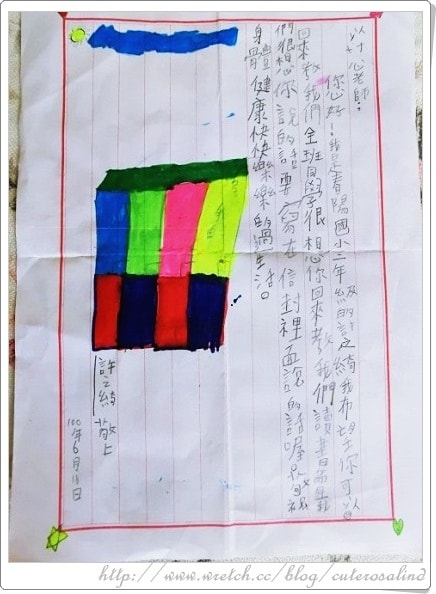 以忻老師:
您好!我是春陽國小三年級的許之綺我布望你可以
回來教我們全班同學很想你回來教我們讀書希望
們很想你說的話要寫在信封裡面說的話喔敬祝
身體健康快快樂樂的過生活。
許之綺 敬上
100年6月11日
http://www.wretch.cc/blog/cuterosalind